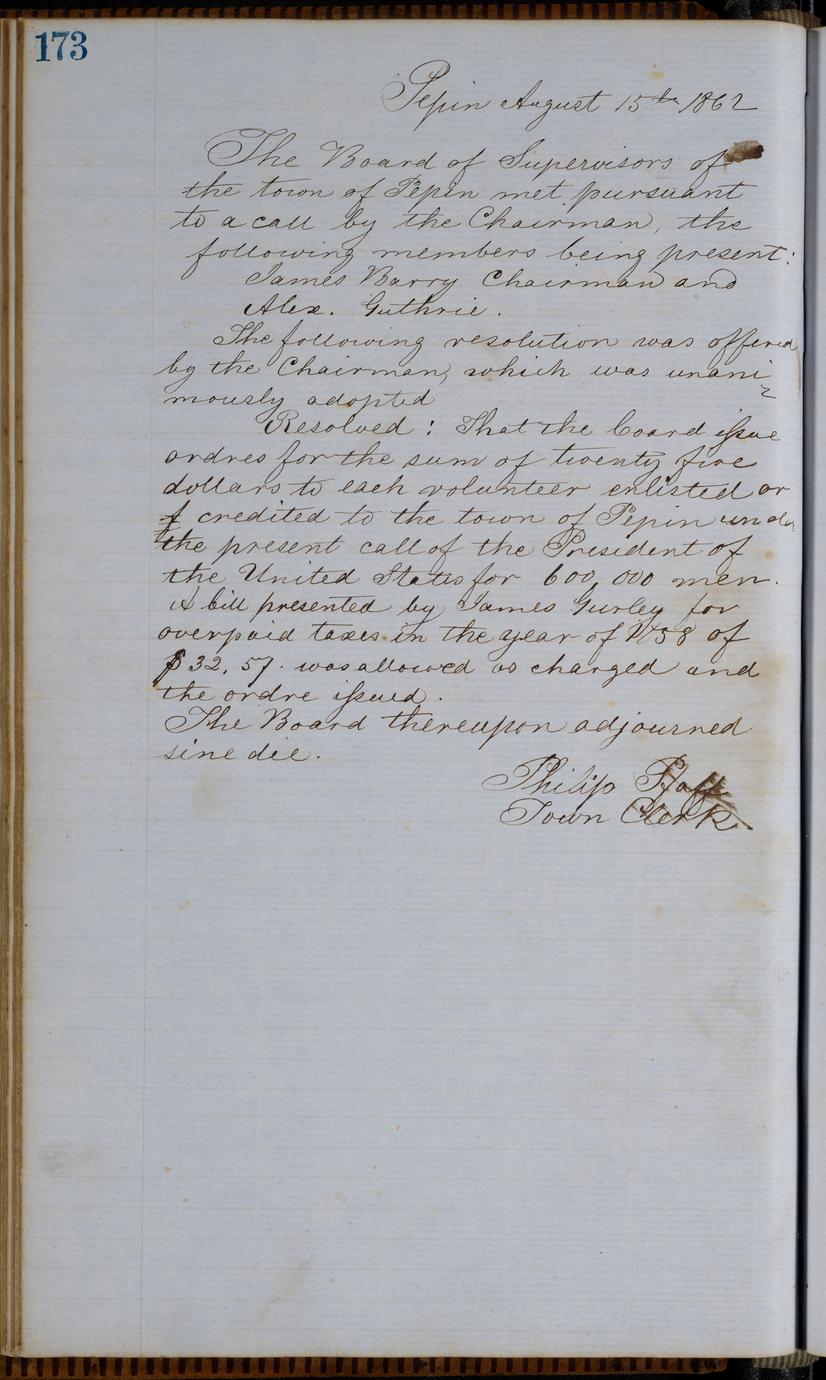 173
Pepin August 15th 1862
The Board of Supervisors of
the town of Pepin met pursuant
to a call by the Chairman, the
following members being present:
James Barry Chairman and
Alex. Guthrie.
The following resolution was offered
by the Chairman, which was unani
mously adopted
Resolved: That the board issue
ordres for the sum of twenty five
dollars to each volunteer enlisted or
credited to the town of Pepin under
the present call of the President of
the United States for 600,000 men.
A bill presented by James Gurley for
overpaid taxes in the year of 1858 of
$32.57. was allowed as charged and
the ordre issued.
The Board thereupon adjourned
sine die.
Philip Pfaff
Town Clerk